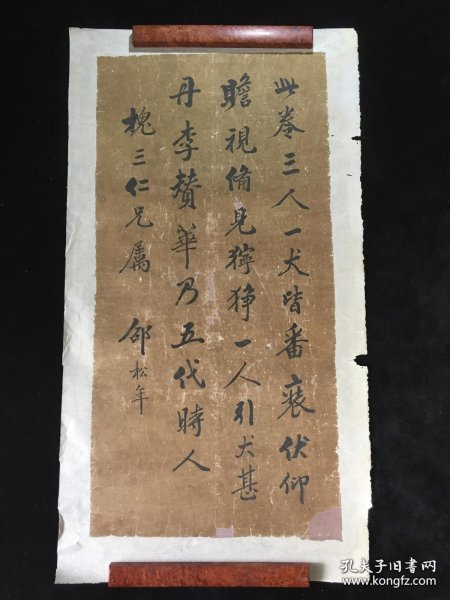 此卷三人一犬皆番裝伏仰
瞻視備見獰猙一人引犬甚
丹李贊華乃五代時人
槐三仁兄属 邵松年
孔夫子旧书网
www.kongfz.com